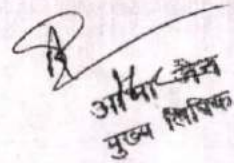 आभा जैन
मुख्य लिपिक